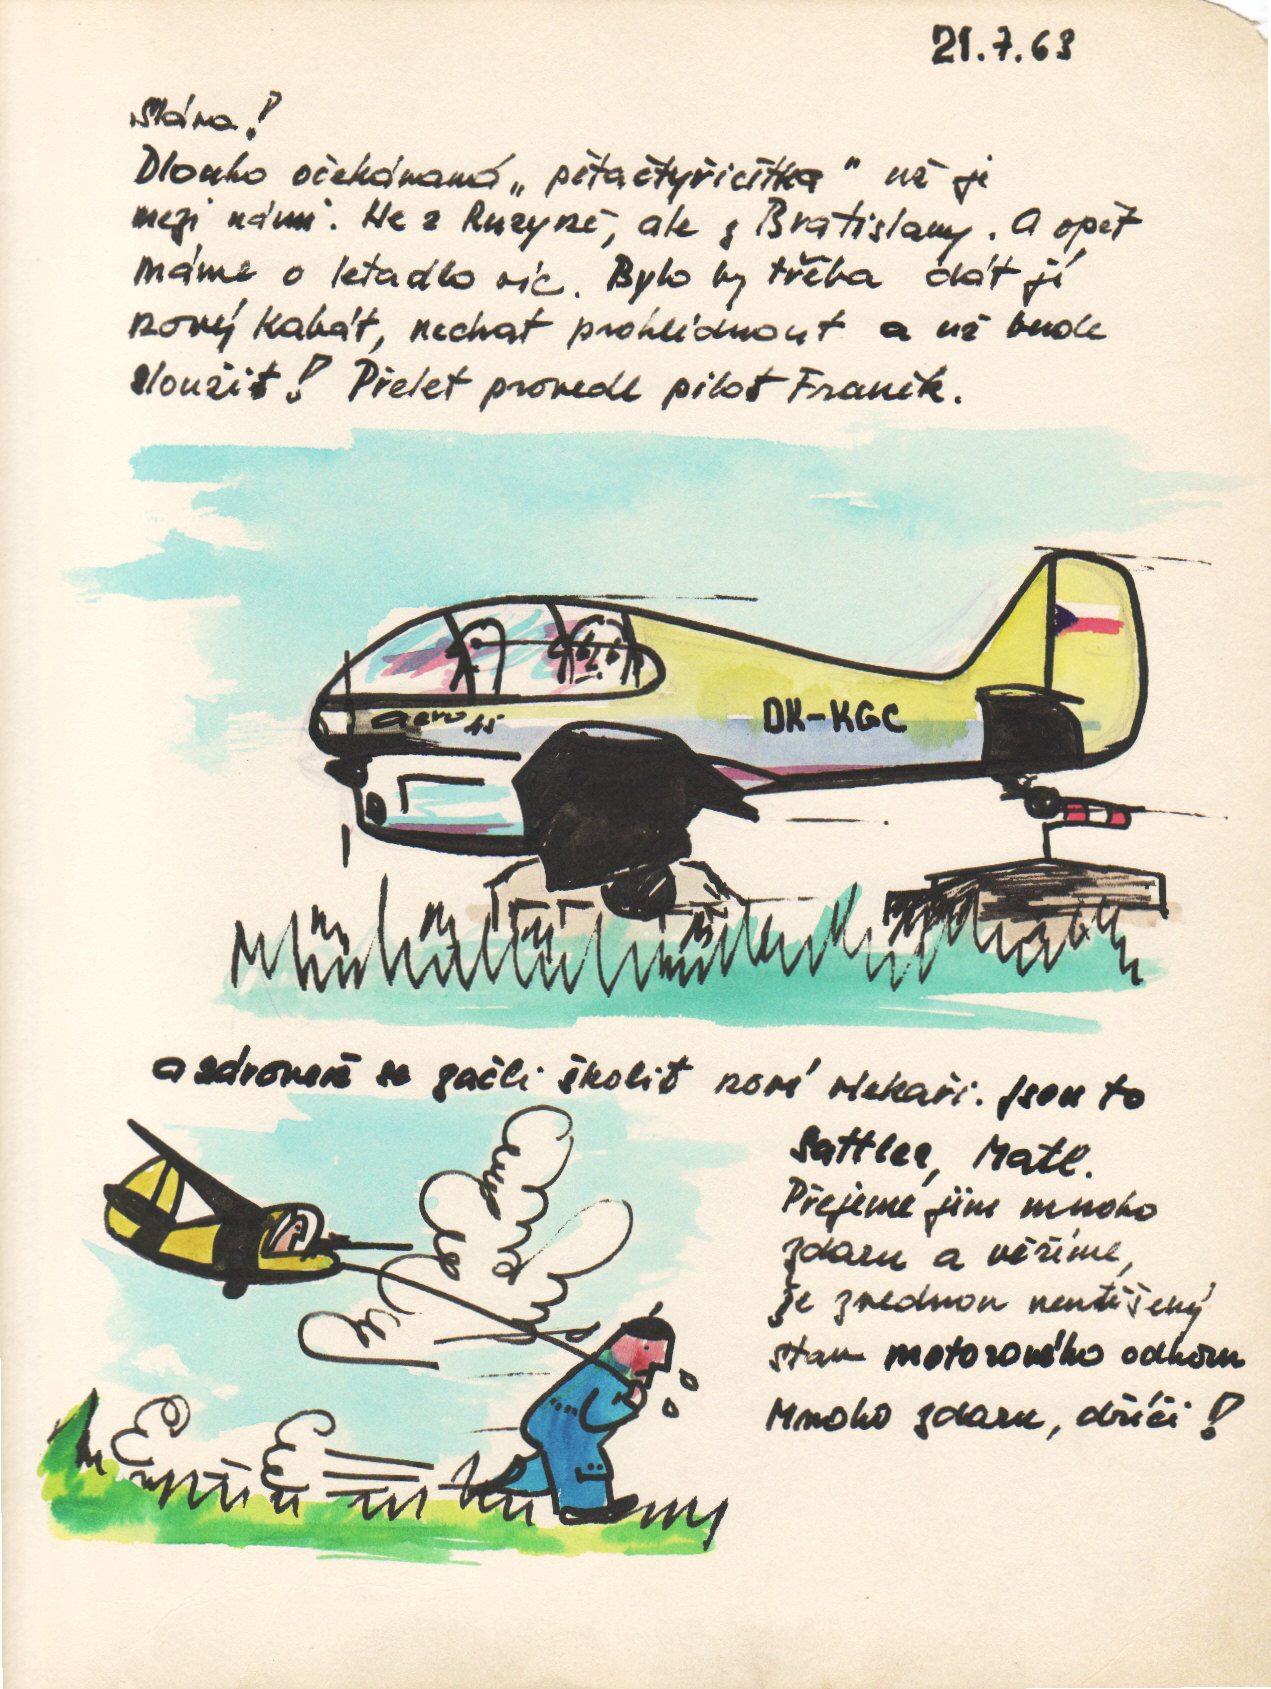 21.7.63
Sláva!
Dlouho očekávaná „pětačtyřicítka" už je
mezi námi. Ne z Ruzyně, ale z Bratislavy. A opět
máme o letadlo víc. Bylo by třeba dát jí
nový kabát, nechat prohlédnout a už bude
sloužit! Přelet provedl pilot Franěk.
aero 45
OK-KGC
a zároveň se začli školit noví vlekaři. Jsou to
Sattler, Matl.
Přejeme jim mnoho
zdaru a věříme,
že zvednou neutěšený
stav motorového odboru
Mnoho zdaru, dříči!